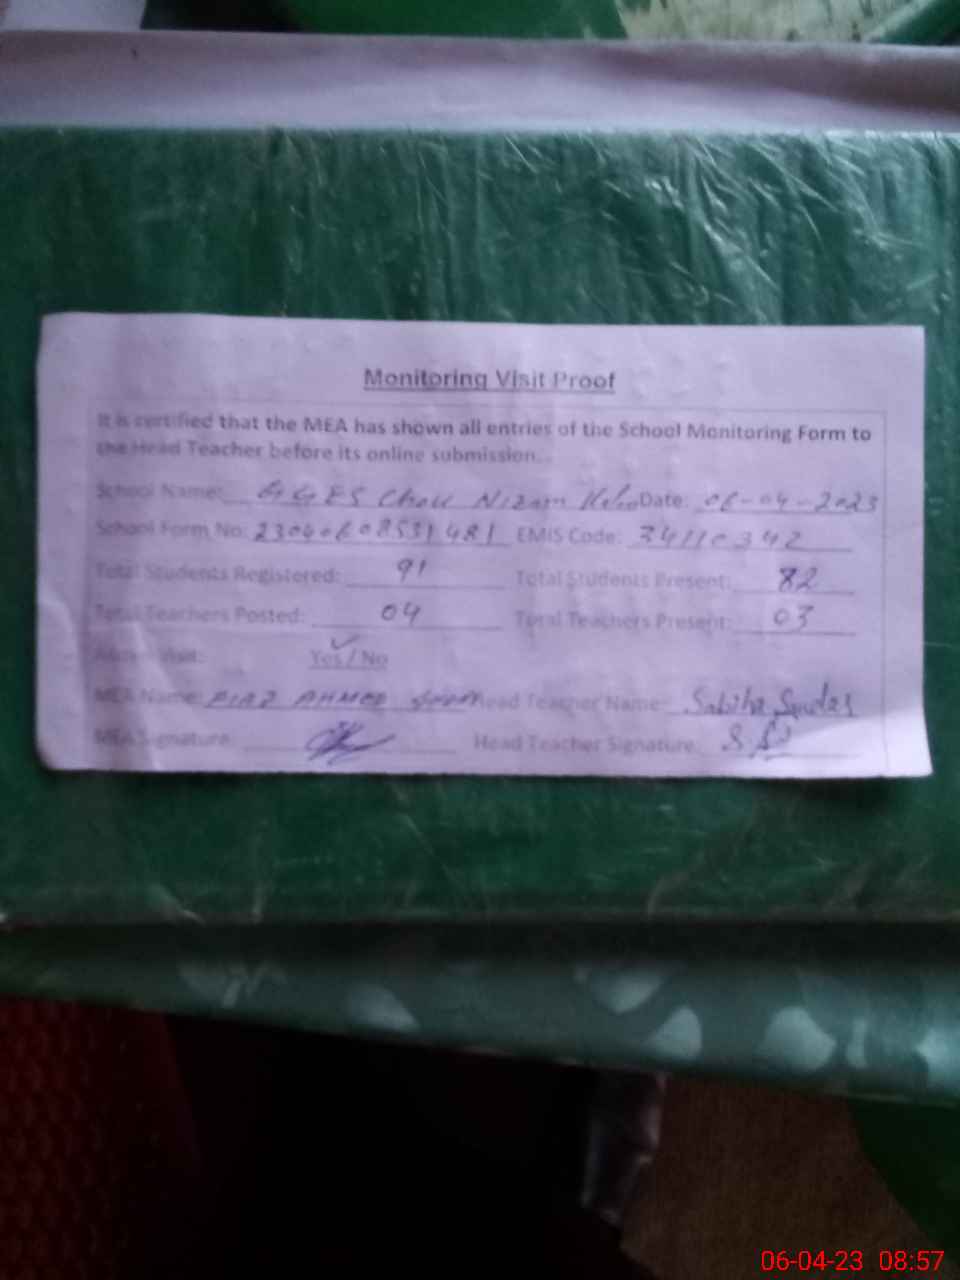 Monitoring Visit Proof
It is certified that the MEA has shown all entries of the School Monitoring Form to
the Head Teacher before its online submission.
School Name: GGES Chak Nizam Date: 06-04-2023
School Form No: 23040608531481 EMIS Code: 34110342
Total Students Registered: 91 Total Students Present: 82
Total Teachers Posted: 04 Total Teachers Present: 03
Admin Visit: Yes / No
MEA Name: AHMED Head Teacher Name: Sabiha
MEA Signature: Head Teacher Signature:
06-04-23 08:57